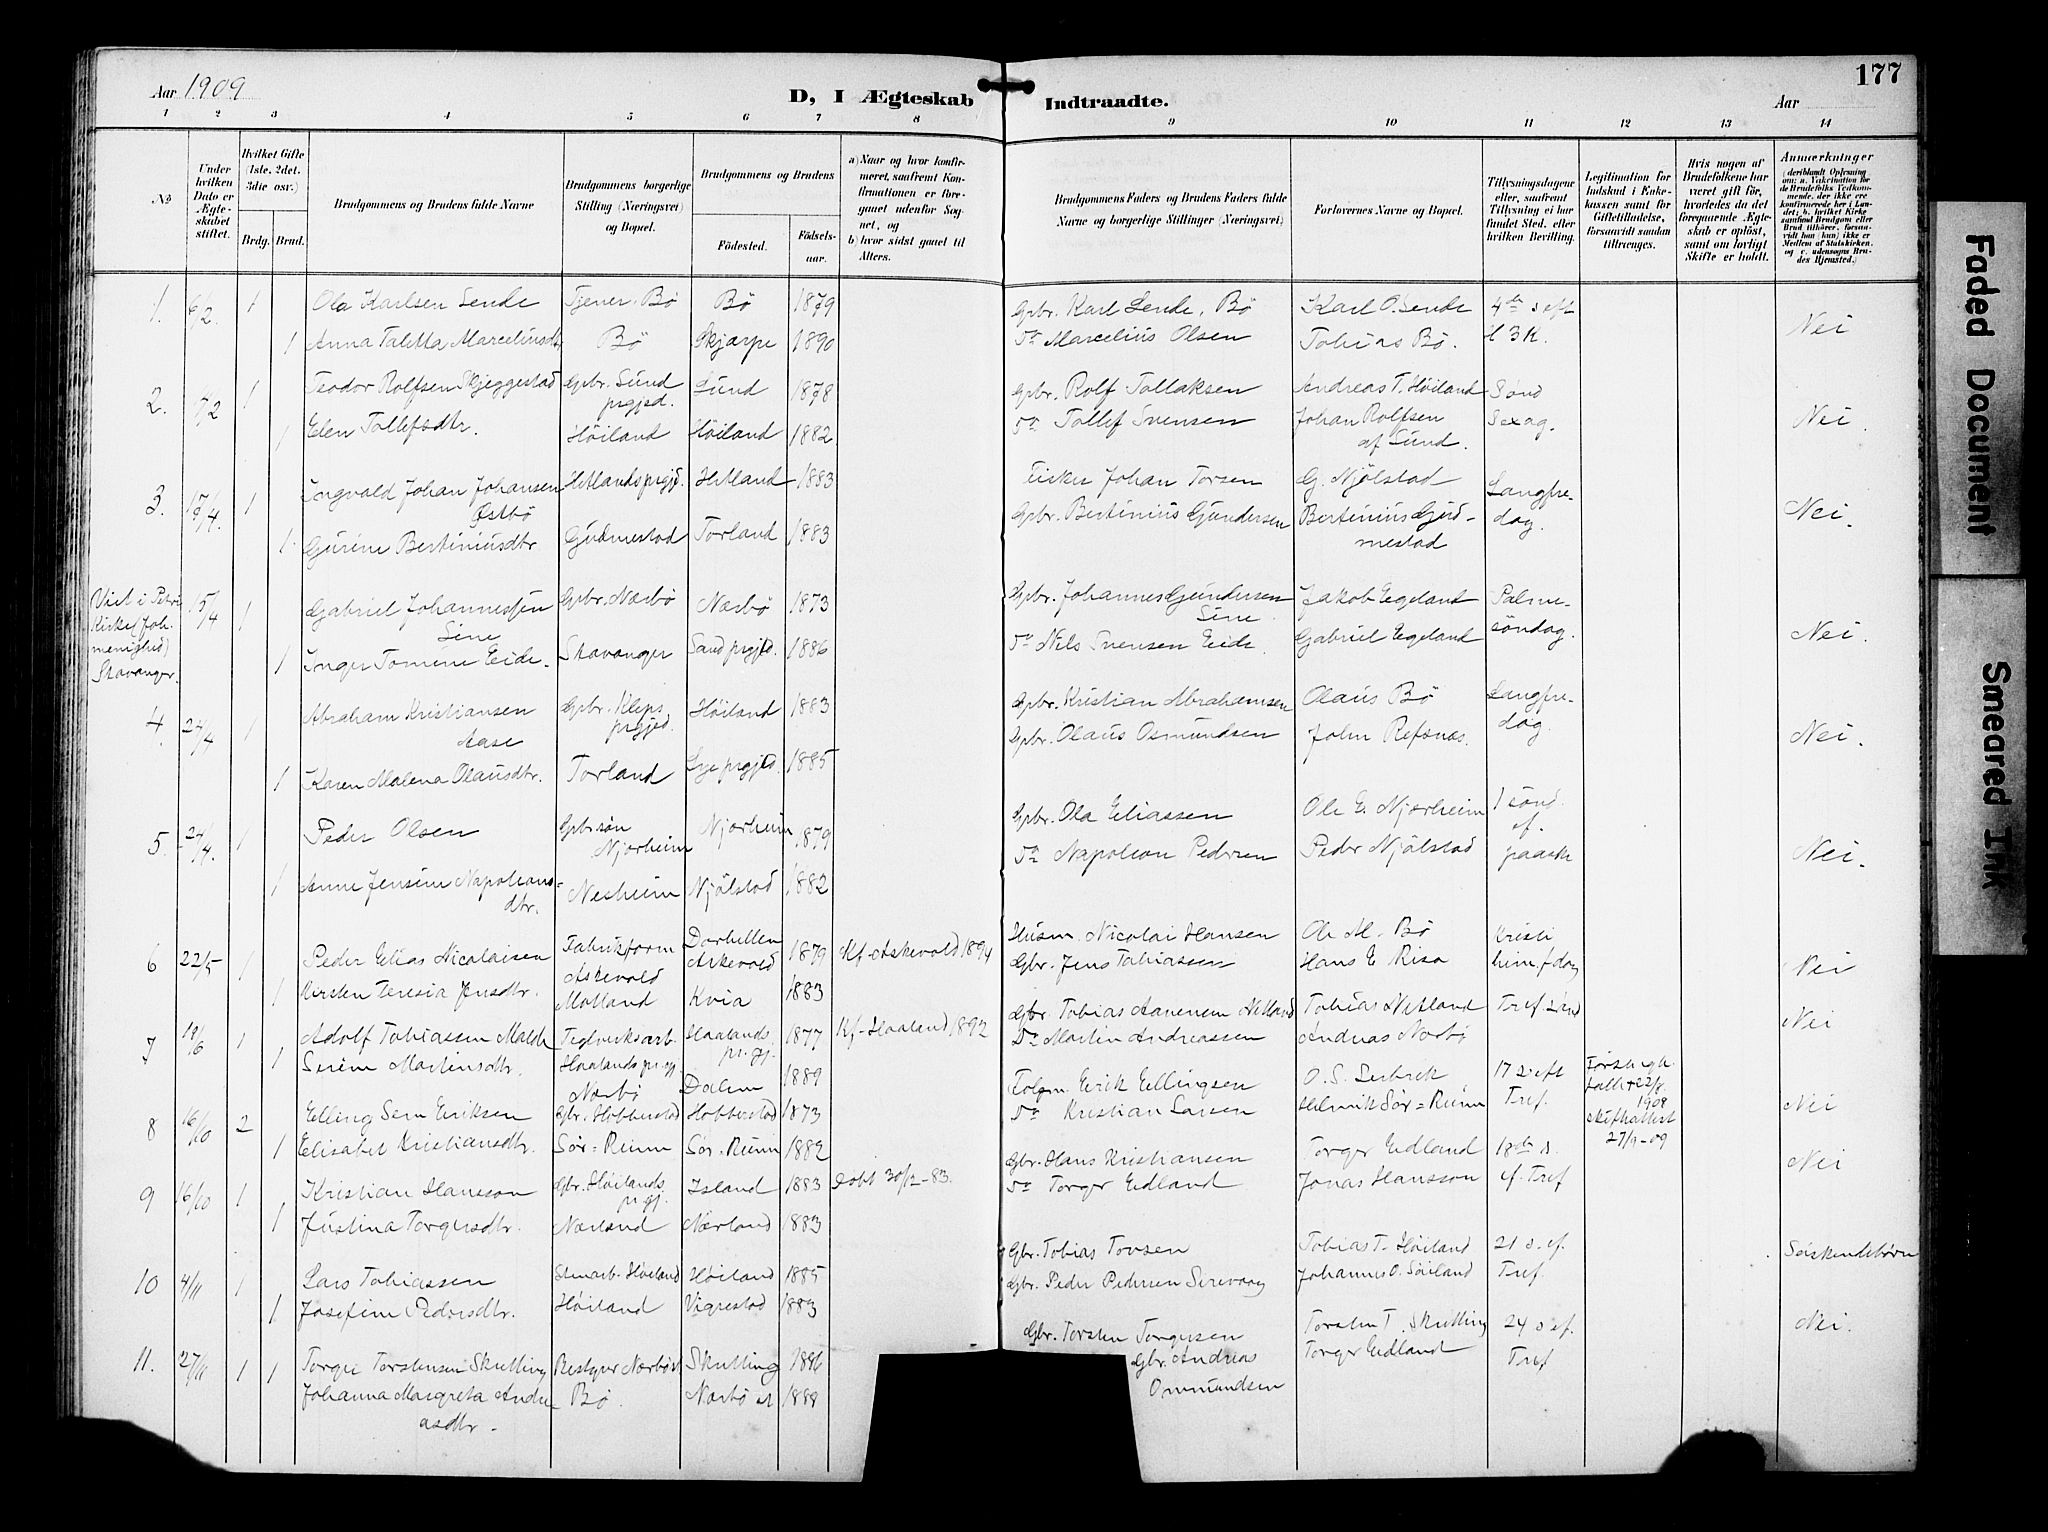 177
Aar 1909
D, I Ægteskab Indtraadte.
Aar
1 2 3 4 5 6 7 8 9 10 11 12 13 14
No
Under hvilken Dato er Ægteskabet stiftet.
Hvilket Gifte (1ste, 2det, 3die osv.)
Brdg. Brud.
Brudgommens og Brudens fulde Navne
Brudgommens borgerlige Stilling (Næringsvei) og Bopæl.
Brudgommens og Brudens
Fødested. Fødselsaar.
a) Naar og hvor konfirmeret, saafremt Konfirmationen er foregaaet udenfor Sognet, og
b) hvor sidst gaaet til Alters.
Brudgommens Faders og Brudens Faders fulde Navne og borgerlige Stillinger (Næringsvei)
Forlovernes Navne og Bopæl.
Tillysningsdagene eller, saafremt Tillysning ei har fundet Sted, efter hvilken Bevilling.
Legitimation for Indskud i Enkekassen samt for Giftetilladelse, forsaavidt saadan tiltrænges.
Hvis nogen af Brudefolkene har været gift før, hvorledes da det foregaaende Ægteskab er opløst, samt om lovligt Skifte er holdt.
Anmærkninger
(deriblandt Oplysning om: a. Vakcination for de Brudefolks Vedkommende, der ikke ere konfirmerede her i Landet; b. hvilket Kirkesamfund Brudgom eller Brud tilhører, forsaavidt han (hun) ikke er Medlem af Statskirken, og c. udensogns Brudes Hjemsted.)
1. 6/2. 1 Ola Karlsen Lende Tjener. Bø Bø 1879 Gbr. Karl Lende, Bø Karl O. Lende 4de s eft
1 Anna Taletta Marceliusdtr Bö Skjærpe 1890 Do Marcelius Olsen Tobias Bø. H 3 K. Nei
2. 1 Teodor Rolfsen Skjeggestad Gbr. Lund prgjed. Lund 1878 Gbr. Rolf Tollaksen Andreas T. Høiland Sönd
1 Elen Tollefsdtr. Höiland Höiland 1882 Do Tollef Svensen Johan Rolfsen af Lund. Sexag. Nei.
3. 17/4. 1 Ingvald Johan Johansen Østbö Hetlands prgjd. Hetland 1883 Fisker Johan Torsen G. Njölstad Langfredag.
1. Gurine Bertiniusdtr Gudmestad Torland 1883 Gbr. Bertinius Gundersen Bertinius Gudmestad Nei.
Viet i Petri Kirke (Joh. menighed) Stavanger. 15/4 1 Gabriel Johannessen Line Gbr. Nærbö Nærbö 1873 Gbr. Johannes Gundersen Line. Jakob Egeland Palmesöndag.
1 Inger Tomine Eide. Stavanger Sand prgjd. 1886 Do Nils Svensen Eide. Gabriel Egeland Nei.
4. 24/4 1 Abraham Kristiansen Aase Gbr. Kleps prgjed. Höiland 1883 Gbr. Kristian Abrahamsen Olaus Bö Langfredag.
1 Karen Malena Olausdtr. Torland Lye prgjd. 1885 Gbr. Olaus Osmundsen John Refsnæs. Nei.
5. 24/4. 1 Peder Olsen Gbr.søn Njærheim Njærheim 1879 Gbr. Ola Eliassen Ole E. Njærheim 1 sönd. ef. paaske
1 Anne Jensine Napoleonsdtr. Nesheim Njölstad 1882 Do Napoleon Pedersen Peder Njölstad Nei.
6 22/5 1 Peder Elias Nicolaisen Fabrikform Askevold Askevold 1879 Kf. Askevold 1894 Husm. Nicolai Hansen Ole M. Bö Kristi him.f.dag
1 Kirsten Teresia Jensdtr. Motland Kvia 1883 Gbr. Jens Tobiassen Hans E Risa Nei
7 1 Adolf Tobiassen Malde Teglverksarb. Haalands pr.gj. Haalands pr.gj. 1877 Kf. Haaland 1892 Gbr. Tobias Aanensen Netland Tobias Netland Tref sönd
1 Serine Martinsdtr. Nærbö Dalen 1889 Do Martin Andreassen Andreas Nærbö Nei
8 16/10 2 Elling Sem Eriksen Gbr. Hobberstad Hobberstad 1873 Folgm. Erik Ellingsen O. S. Lerbrek 17 s. eft Tref. 22/8. 1908 skifteattest 27/9-09
1 Elisabet Kristiansdtr. Sör-Reime Sör-Reime 1882 Do Kristian Larsen Helmik Sør-Reime Nei
9 16/10 1 Kristian Hansson Gbr. Höilands p.gj. Island 1883 Døbt 30/12-83. Gbr. Hans Kristiansen Torger Eidland 18de s. ef. Tref
1 Justina Torgersdtr. Nærland Nærland 1883 Do Torger Eidland Jonas Hansson Nei
10 4/11 1 Lars Tobiassen Stenarb. Höiland Höiland 1885 Gbr. Tobias Torsen Tobias T. Höiland 21 s. ef. Tref
1 Josefine Pedersdtr. Höiland Vigrestad 1883 Gbr. Peder Pedersen Sirevaag Johannes O. Söiland Söskendebörn
11. 27/11 1 Torger Torstensen Skretting Bestyrer Nærbö st Skretting 1886 Gbr. Torsten Torgersen Torsten T. Skretting 24 s ef. Tref
1 Johanna Margreta Andreasdtr. Bö. Nærbö st 1888 Gbr. Andreas Ommundsen Torger Eidland Nei.
Faded Document
Smeared Ink